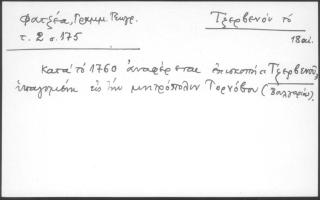 Φατζέα, Γραμμ. Γεωγρ. Τζερβενόν τό
τ. 2 σ. 175 18 αἰ.
Κατά τό 1760 ἀναφέρεται ἐπισκοπή Τζερβενοῦ,
ὑπαγομένη εἰς τήν μητρόπολιν Τορνόβου (Βουλγαρίας).